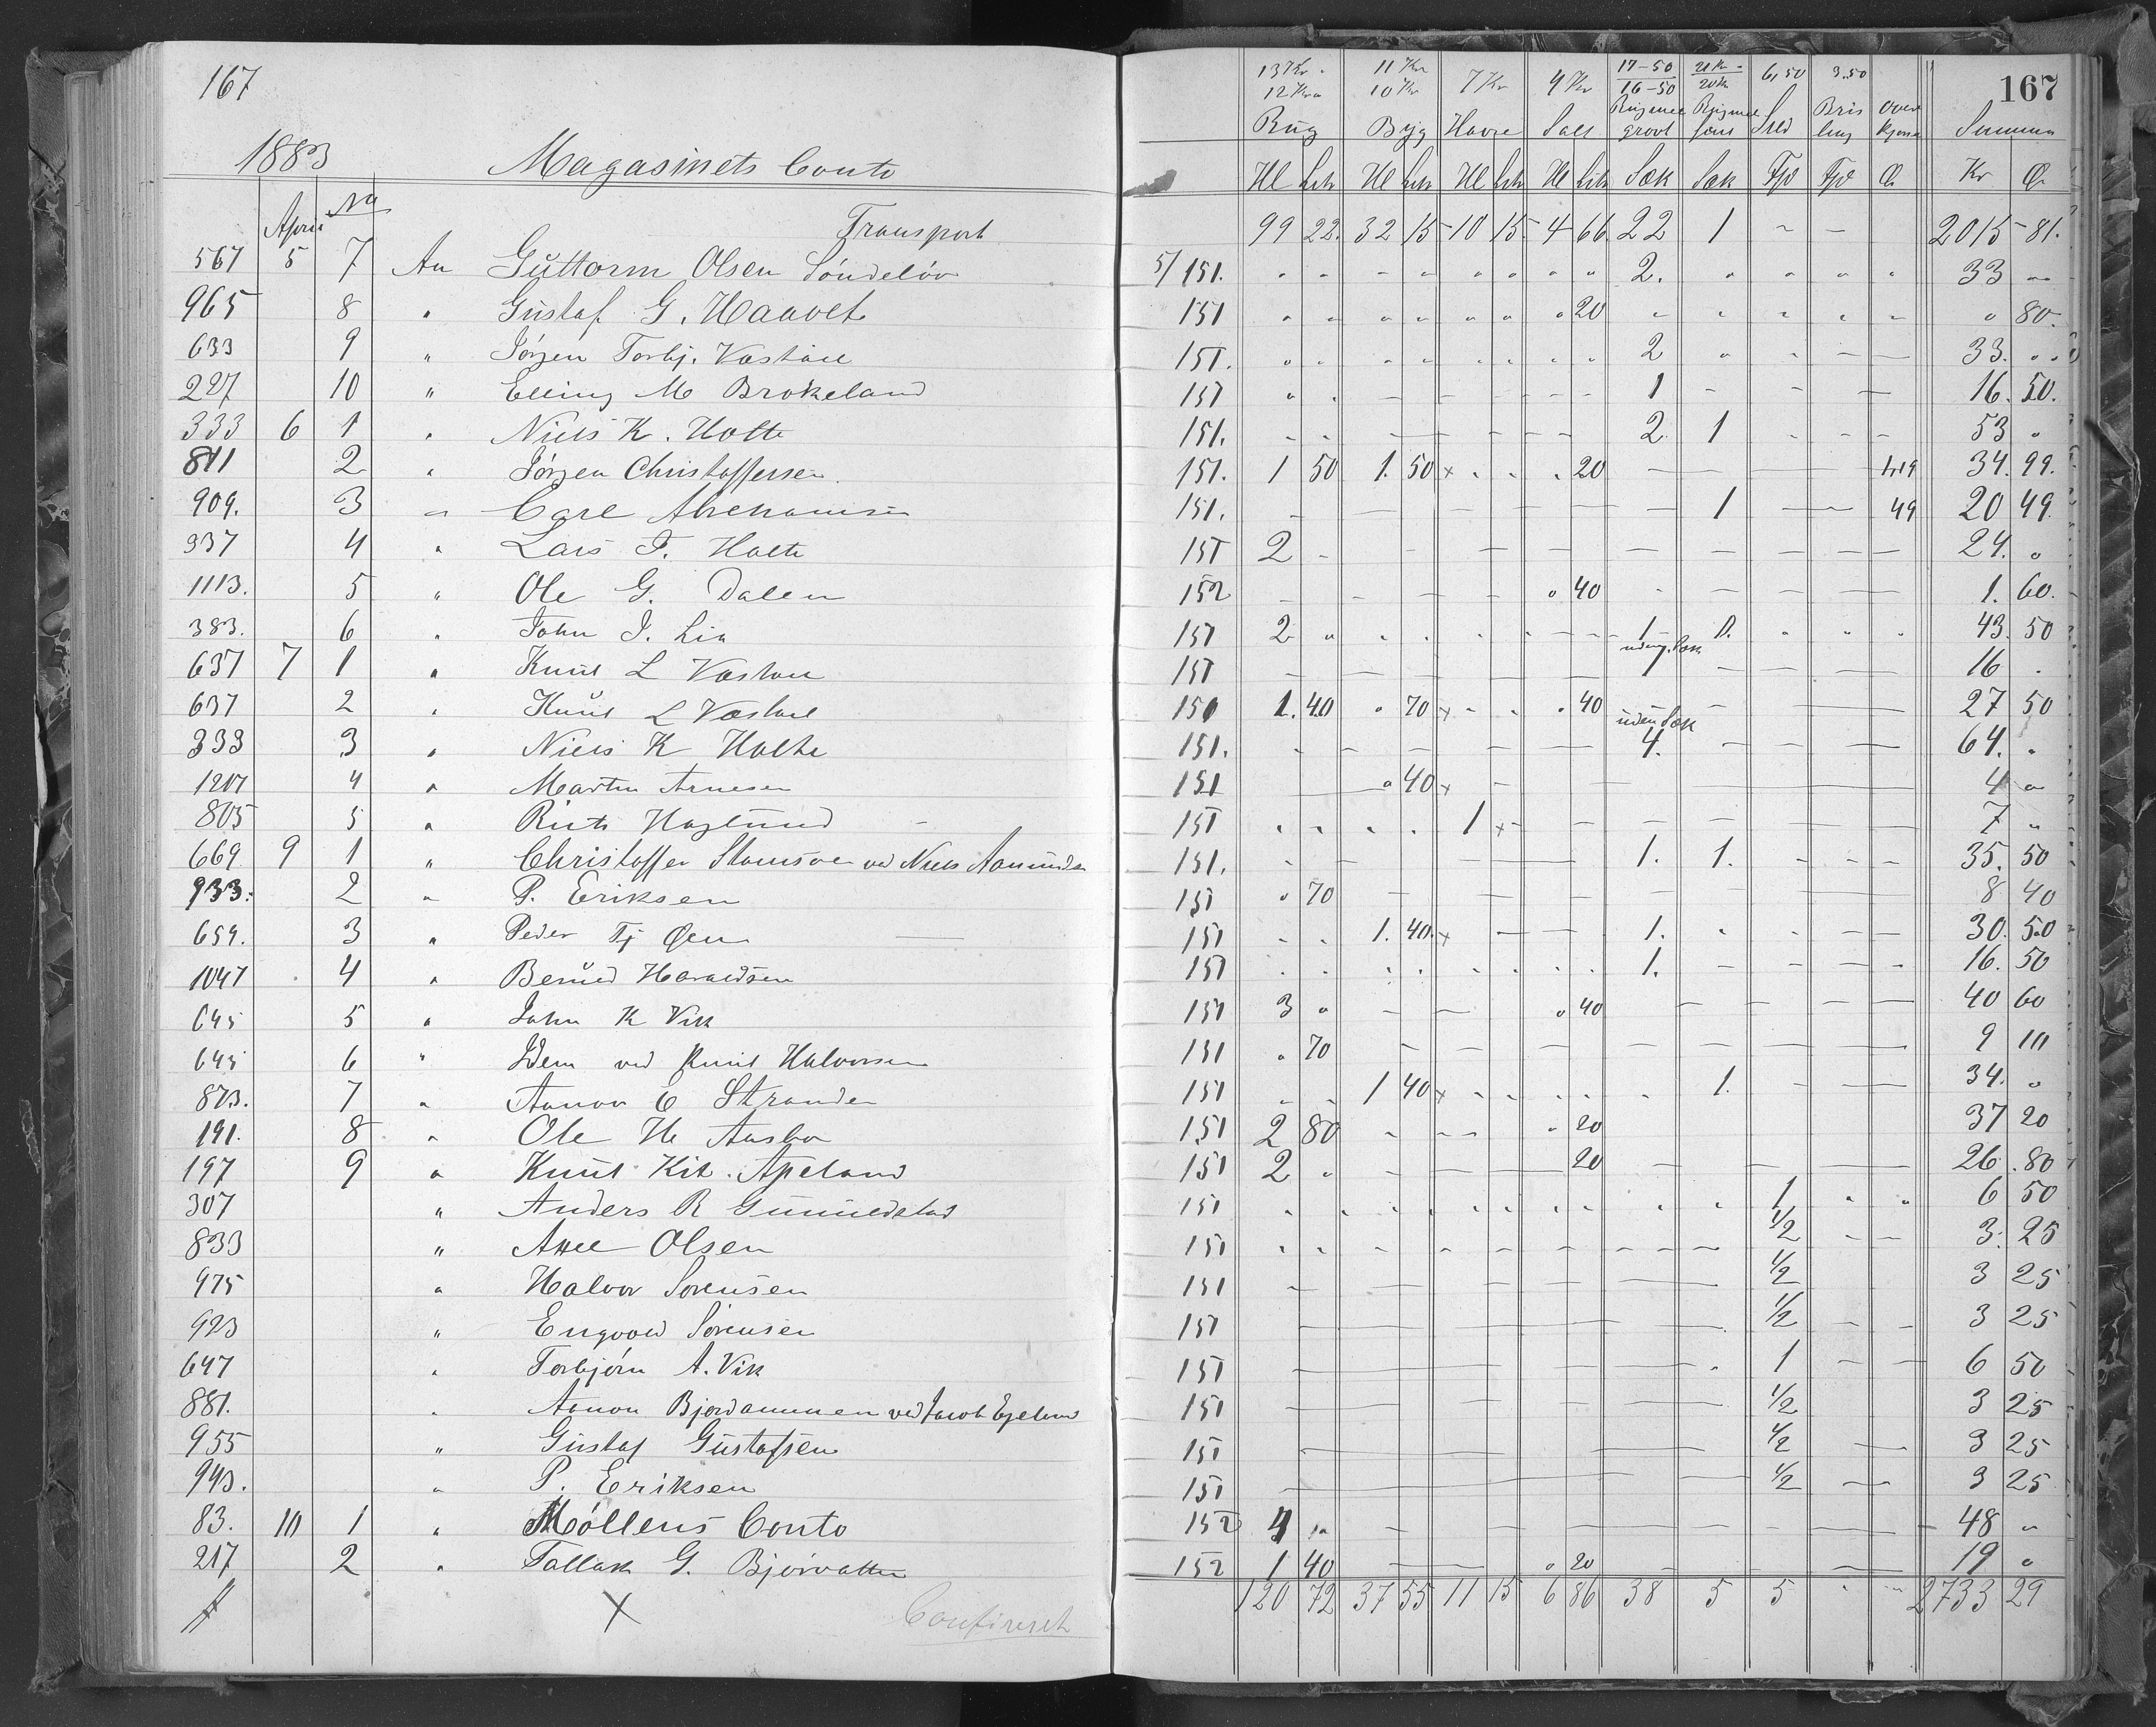 167
1883 Magasinets Conto
April No
Transport
567 5 7 An Guttorm Olsen Söndelöv
965 8 " Gustaf G. Haavet
633 9 " Jörgen Torbj.
227 10 " Elling M Brokeland
333 6 1 " Niels K. Holte
811 2 " Jörgen Christoffersen
909. 3 " Carl Abrehamsen
337 4 " Lars T. Holte
1113. 5 " Ole G. Dalen
383. 6 " John J. Lia
637 7 1 " Knut L
637 2 " Knut L
333 3 " Niels K Holte
4 " Martin Arnesen
805 5 " Haglund
669 9 1 " Christoffer ved Niels
933. 2 " P. Eriksen
659. 3 " Peder Tj Öen
1047 4 " Haraldsen
645 5 " John K Vik
645 6 " Idem ved Knut Halvorsen
873. 7 " E Stranden
191. 8 " Ole H
197 9 " Knut Kit. Apeland
307 " Anders R
833 " Axel Olsen
975 " Halvor Sörensen
923 " Engvold Sörensen
647 " Torbjörn A. Vik
881. " ved Jacob Egeland
955 " Gustaf Gustafsen
943. " P. Eriksen
83. 10 1 " Möllens Conto
217 2 " Tallak G. Bjorvatten
X
Confereret
13 Kr. 11 Kr 7 Kr 4 Kr 17-50 21 Kr- 6,50 3.50 167
12 Kr 10 Kr 16-50 20 Kr
Rug Byg Havre Salt Rugmel grovt Rugmel Sild Brisling Summa
Hl Litr Hl Litr Hl Litr Hl Litr Sæk Sæk Fjd Fjd Ö Kr Ö
99 22. 32 15 10 15. 4 66 22 1 2015 81.
5/151. 2. 33
151 20 80.
151. 2 33.
151 1 16. 50.
151. 2 1 53
151. 1 50 1. 50 x 20 1,19 34. 99.
151. 1 49 20 49
151 2 24.
152 40 1. 60.
151 2 1 1. 43. 50
uden Sæk
151 1 16
151 1. 40 70 x 40 27 50
uden Sæk
151. 4. 64.
151 40 x 4
151 1 x 7
151. 1. 1. 35. 50
151 70 8 40
151 1. 40. x 1. 30. 50
151 1. 16. 50
151 3 40 40 60
151 70 9 10
151 1 40 x 1. 34.
151 2 80 20 37 20
151 2 20 26 80
151 1 6 50
151 1/2 3. 25
151 1/2 3 25
151 1/2 3 25
151 1 6 50
151 1/2 3 25
151 1/2 3 25
151 1/2 3 25
152 4 48
152 1 40 20 19
120 72 37 55 11 15 6 86 38 5 5 2733 29